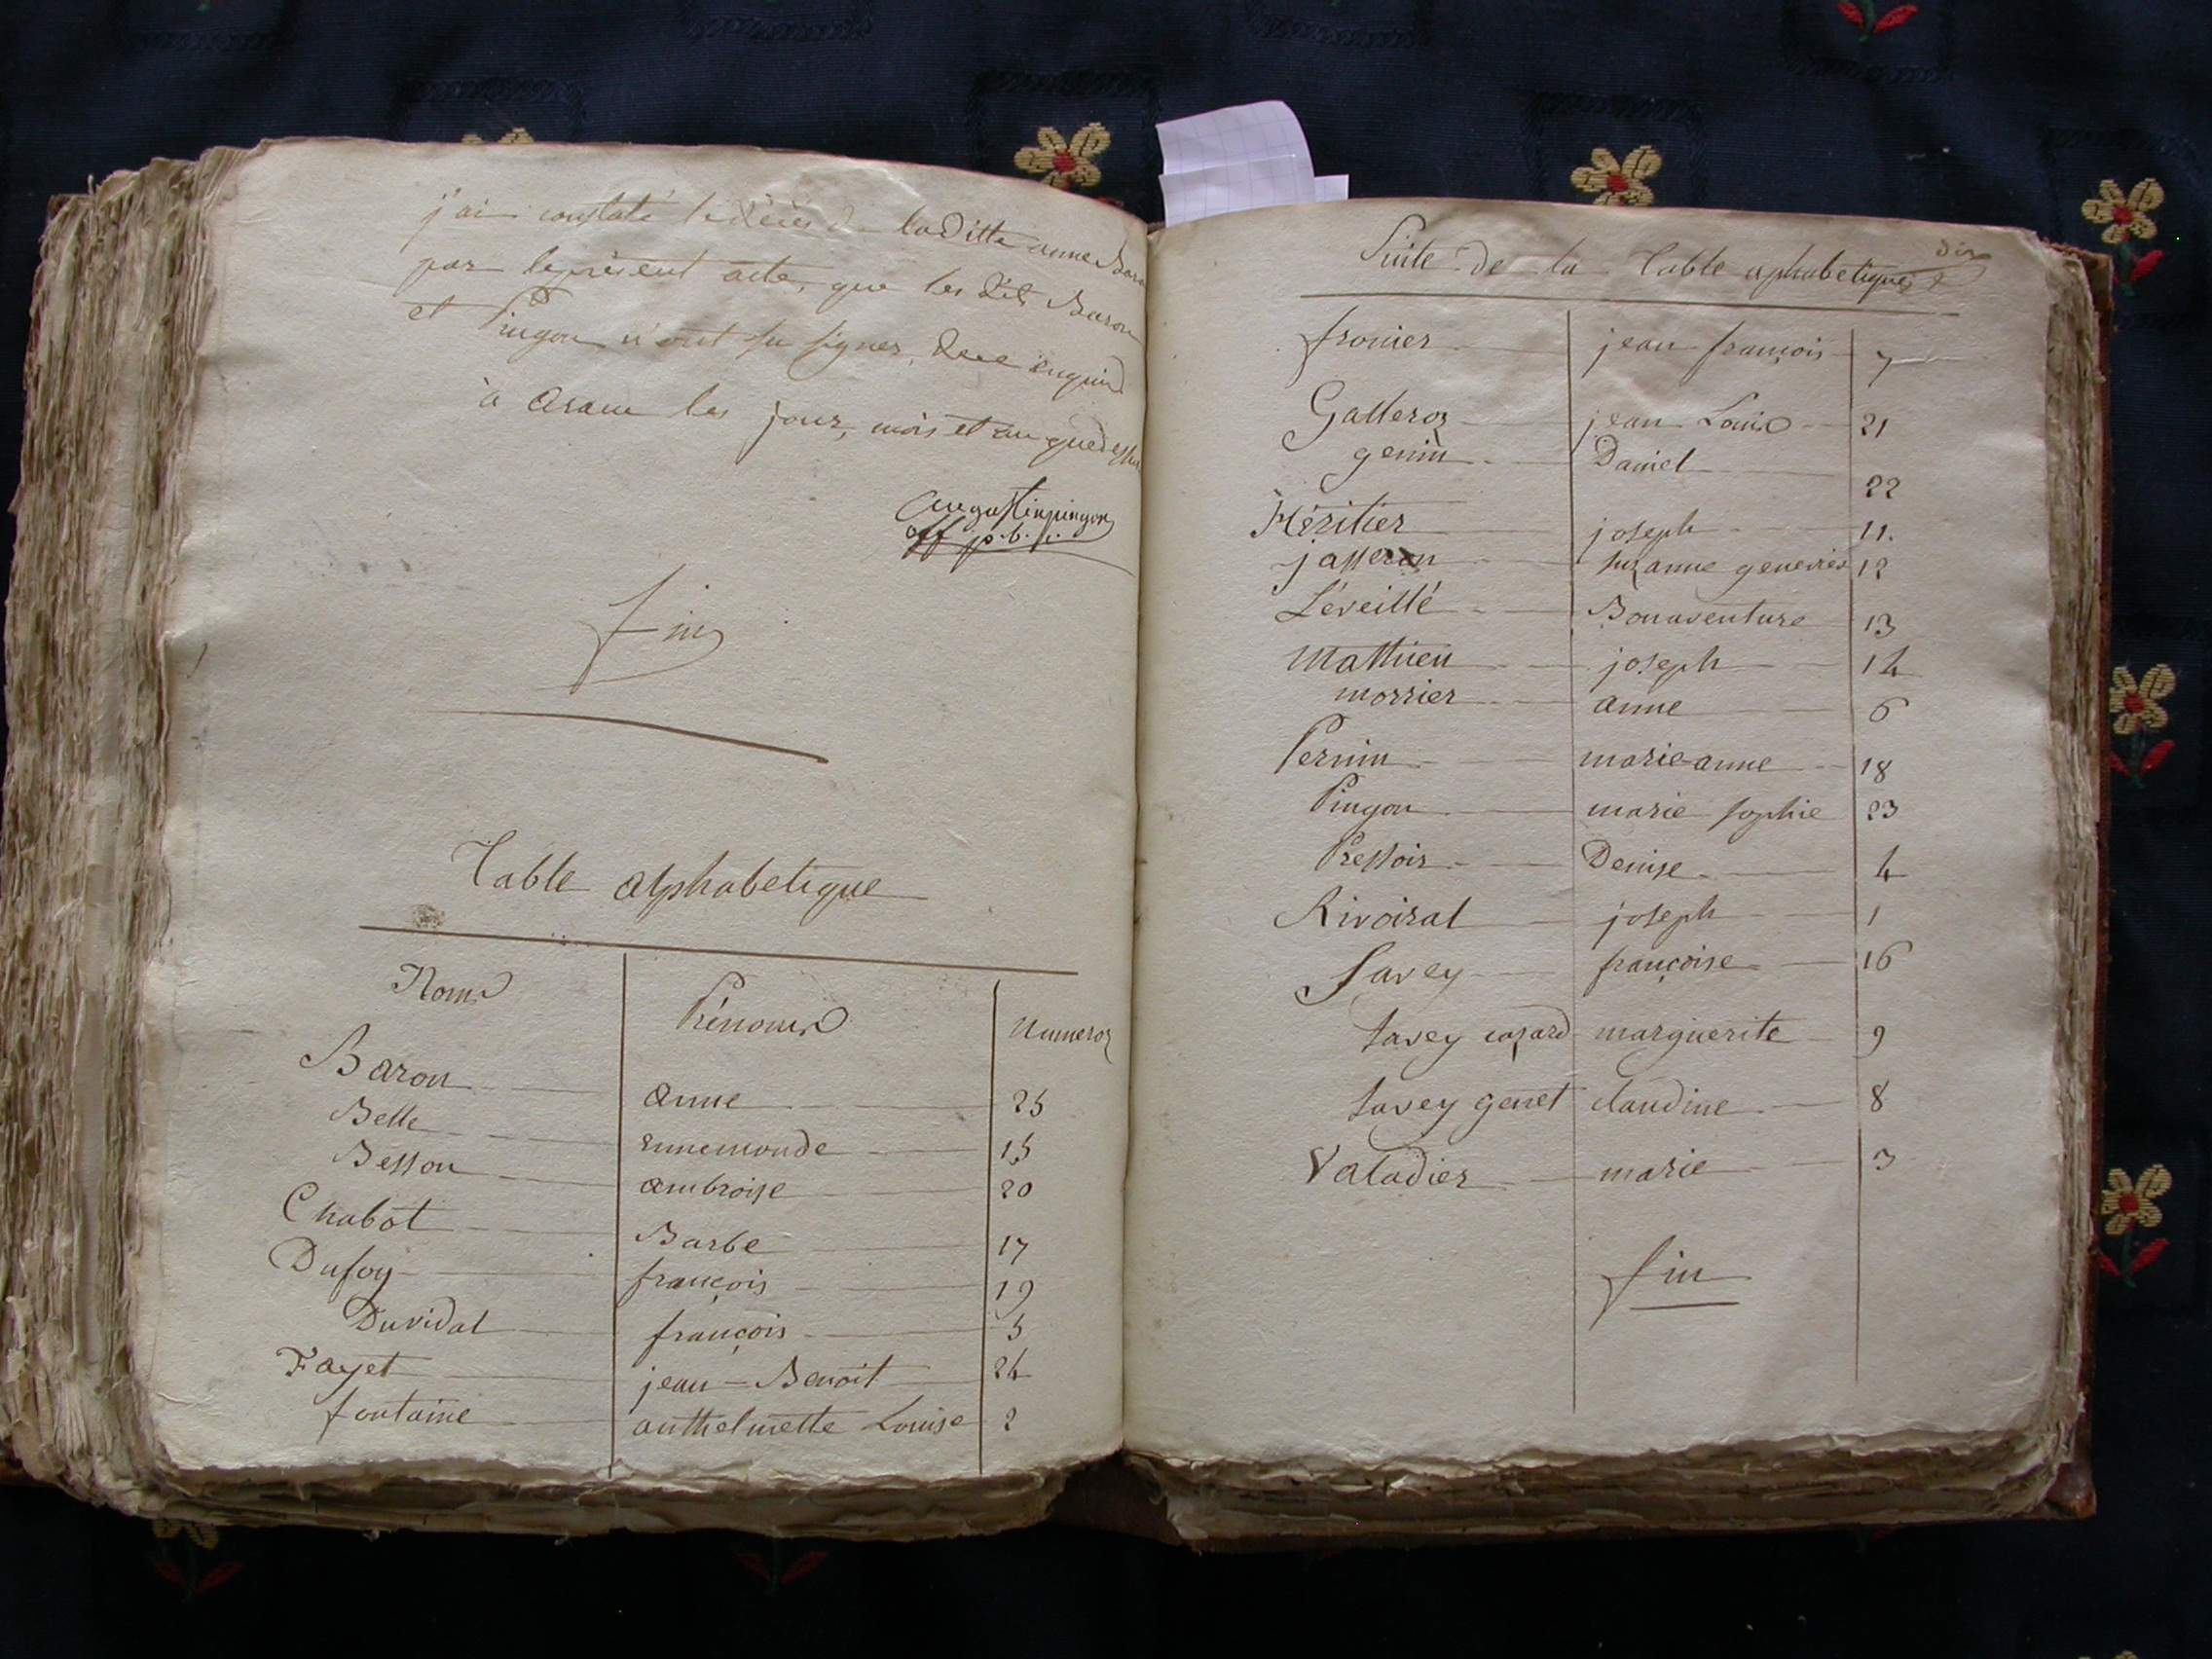 j'ai constaté le décès de la ditte anne Baron
par le présent acte, que les dits Baron
et Pingon n'ont su signer, de ce enquis
à aranc les jour, mois et an que dessus
Augustin pingon
off. p.b.
fin
Table alphabetique
Noms Prénoms Numeros
Baron anne 25
Belle ennemonde 15
Besson ambroise 20
Chabot Barbe 17
Dufoy françois 19
Duvidal françois 5
Fayet jean-Benoit 24
fontaine anthelmette Louise 2
Suite de la Table alphabetique dix
fronier jean françois 7
Galleroz jean Louis 21
genin Daniel 22
Héritier joseph 11.
jasseron suzanne genevieve 12
Léveillé Bonaventure 13
Mathieu joseph 14
morrier anne 6
Pernin marie-anne 18
Pingon marie sophie 23
Pressoir Denise 4
Rivoirat joseph 1
Savey françoise 16
savey cozard marguerite 9
savey genet claudine 8
Valadier marie 3
fin